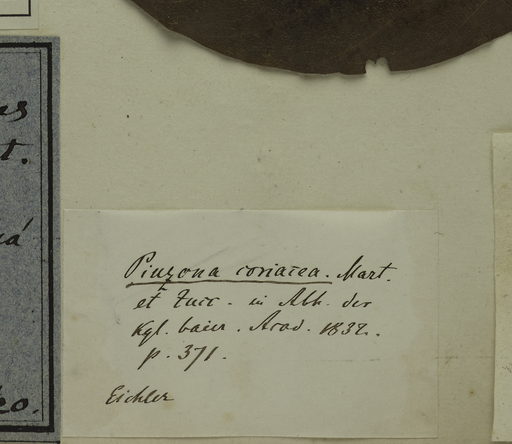 Pinzona coriacea. Mart.
et Zucc. in Abh. der
Kgl. baier. Acad. 1832.
p. 371.
Eichler